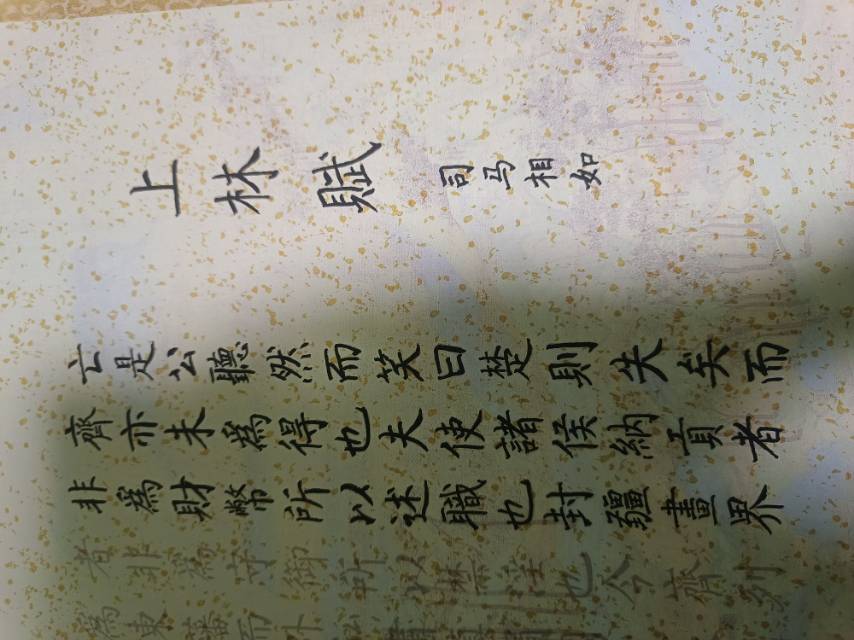 上林賦
司马相如
亡是公聽然而笑曰楚則失矣而
齊亦未為得也夫使諸侯納貢者
非為財幣所以述職也封疆畫界
者非為守御所以禁淫也今齊列
為東藩而外